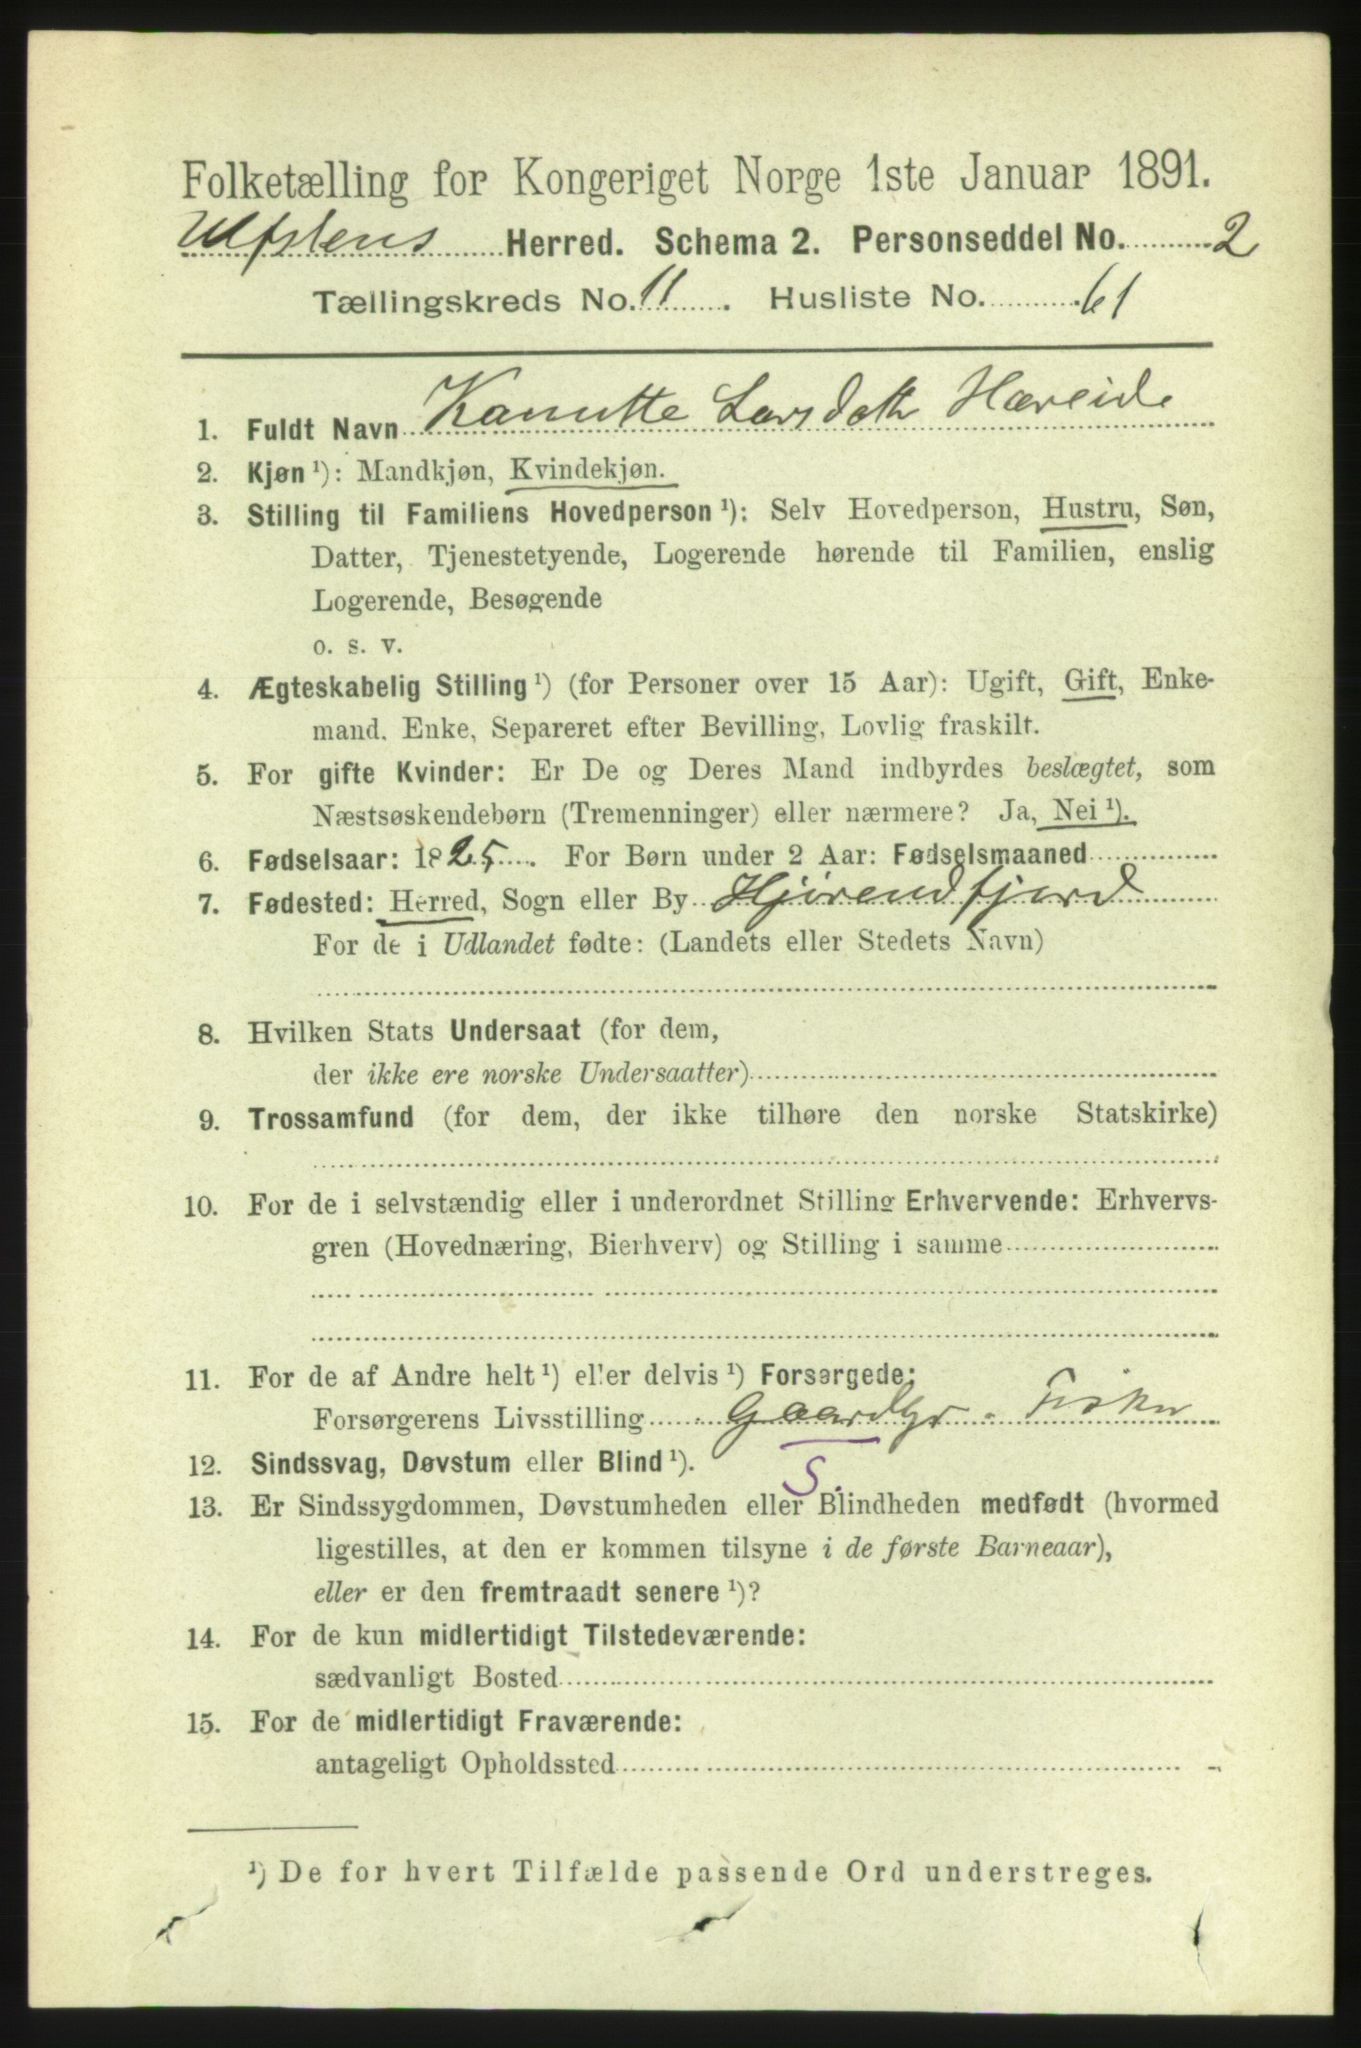 Folketælling for Kongeriget Norge 1ste Januar 1891.
Ulfstens Herred. Schema 2. Personseddel No. 2
Tællingskreds No. 11. Husliste No. 61
1. Fuldt Navn Kanutte Larsdatr Hareide
2. Kjøn ¹): Mandkjøn, Kvindekjøn.
3. Stilling til Familiens Hovedperson ¹): Selv Hovedperson, Hustru, Søn,
Datter, Tjenestetyende, Logerende hørende til Familien, enslig
Logerende, Besøgende
o. s. v.
4. Ægteskabelig Stilling ¹) (for Personer over 15 Aar): Ugift, Gift, Enke-
mand, Enke, Separeret efter Bevilling, Lovlig fraskilt.
5. For gifte Kvinder: Er De og Deres Mand indbyrdes beslægtet, som
Næstsøskendebørn (Tremenninger) eller nærmere? Ja, Nei ¹).
6. Fødselsaar: 1825. For Børn under 2 Aar: Fødselsmaaned
7. Fødested: Herred, Sogn eller By Hjørendfjord
For de i Udlandet fødte: (Landets eller Stedets Navn)
8. Hvilken Stats Undersaat (for dem,
der ikke ere norske Undersaatter)
9. Trossamfund (for dem, der ikke tilhøre den norske Statskirke)
10. For de i selvstændig eller i underordnet Stilling Erhvervende: Erhvervs-
gren (Hovednæring, Bierhverv) og Stilling i samme
11. For de af Andre helt ¹) eller delvis ¹) Forsørgede:
Forsørgerens Livsstilling Gaardbr. Fisker
12. Sindssvag, Døvstum eller Blind ¹).
S.
13. Er Sindssygdommen, Døvstumheden eller Blindheden medfødt (hvormed
ligestilles, at den er kommen tilsyne i de første Barneaar),
eller er den fremtraadt senere ¹)?
14. For de kun midlertidigt Tilstedeværende:
sædvanligt Bosted
15. For de midlertidigt Fraværende:
antageligt Opholdssted
¹) De for hvert Tilfælde passende Ord understreges.